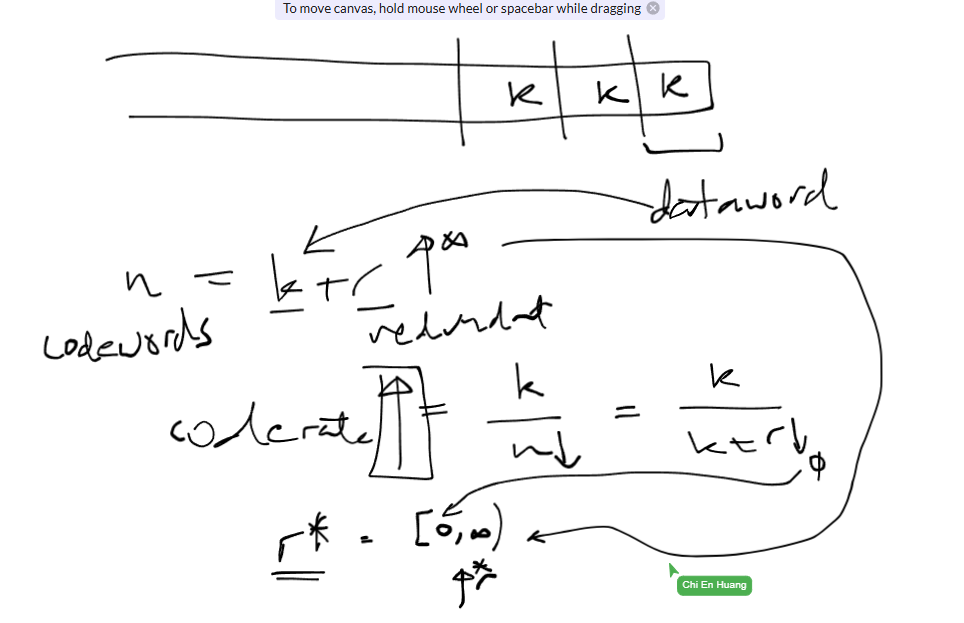 To move canvas, hold mouse wheel or spacebar while dragging
k k k
dataword
n = k + r ↑ ∞
codewords
redundat
coderate ↑ = k / n↓ = k / k + r↓ 0
r* = [0, ∞)
↑ *r
Chi En Huang